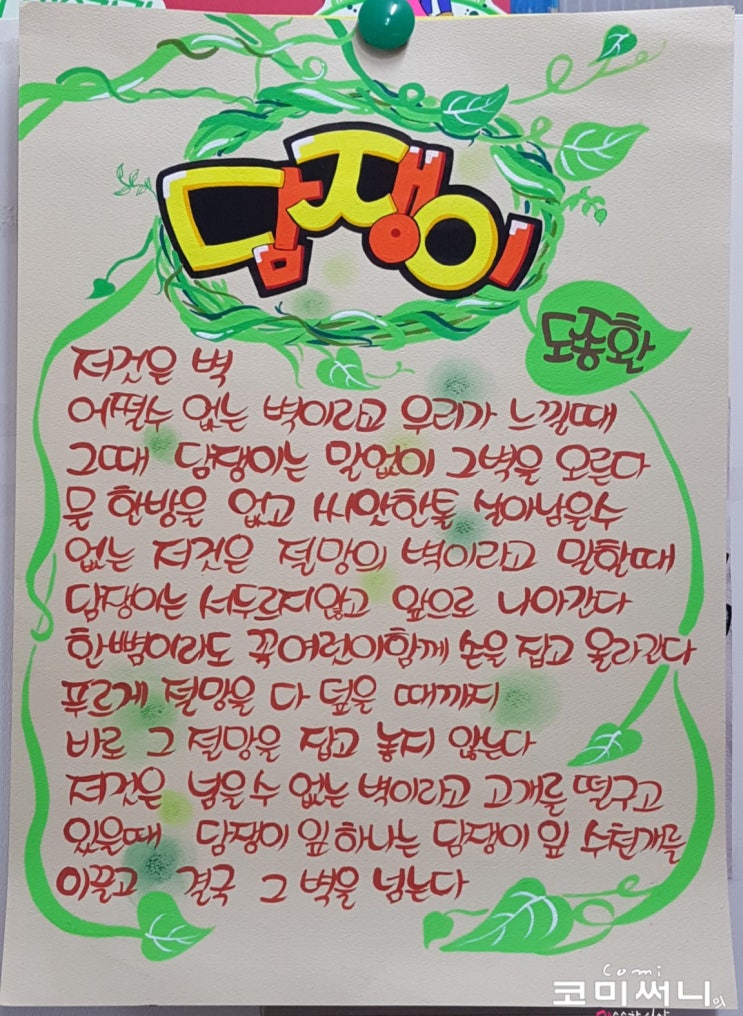 담쟁이
도종환
저것은 벽
어쩔수 없는 벽이라고 우리가 느낄때
그때 담쟁이는 말없이 그벽을 오른다
물 한방울 없고 씨앗한톨 살아남을수
없는 저것은 절망의 벽이라고 말할때
담쟁이는 서두르지않고 앞으로 나아간다
한뼘이라도 꼭여럿이함께 손을 잡고 올라간다
푸르게 절망을 다 덮을 때까지
바로 그 절망을 잡고 놓지 않는다
저것은 넘을수 없는 벽이라고 고개를 떨구고
있을때 담쟁이 잎하나는 담쟁이 잎 수천개를
이끌고 결국 그 벽을 넘는다
Comi
코미써니의